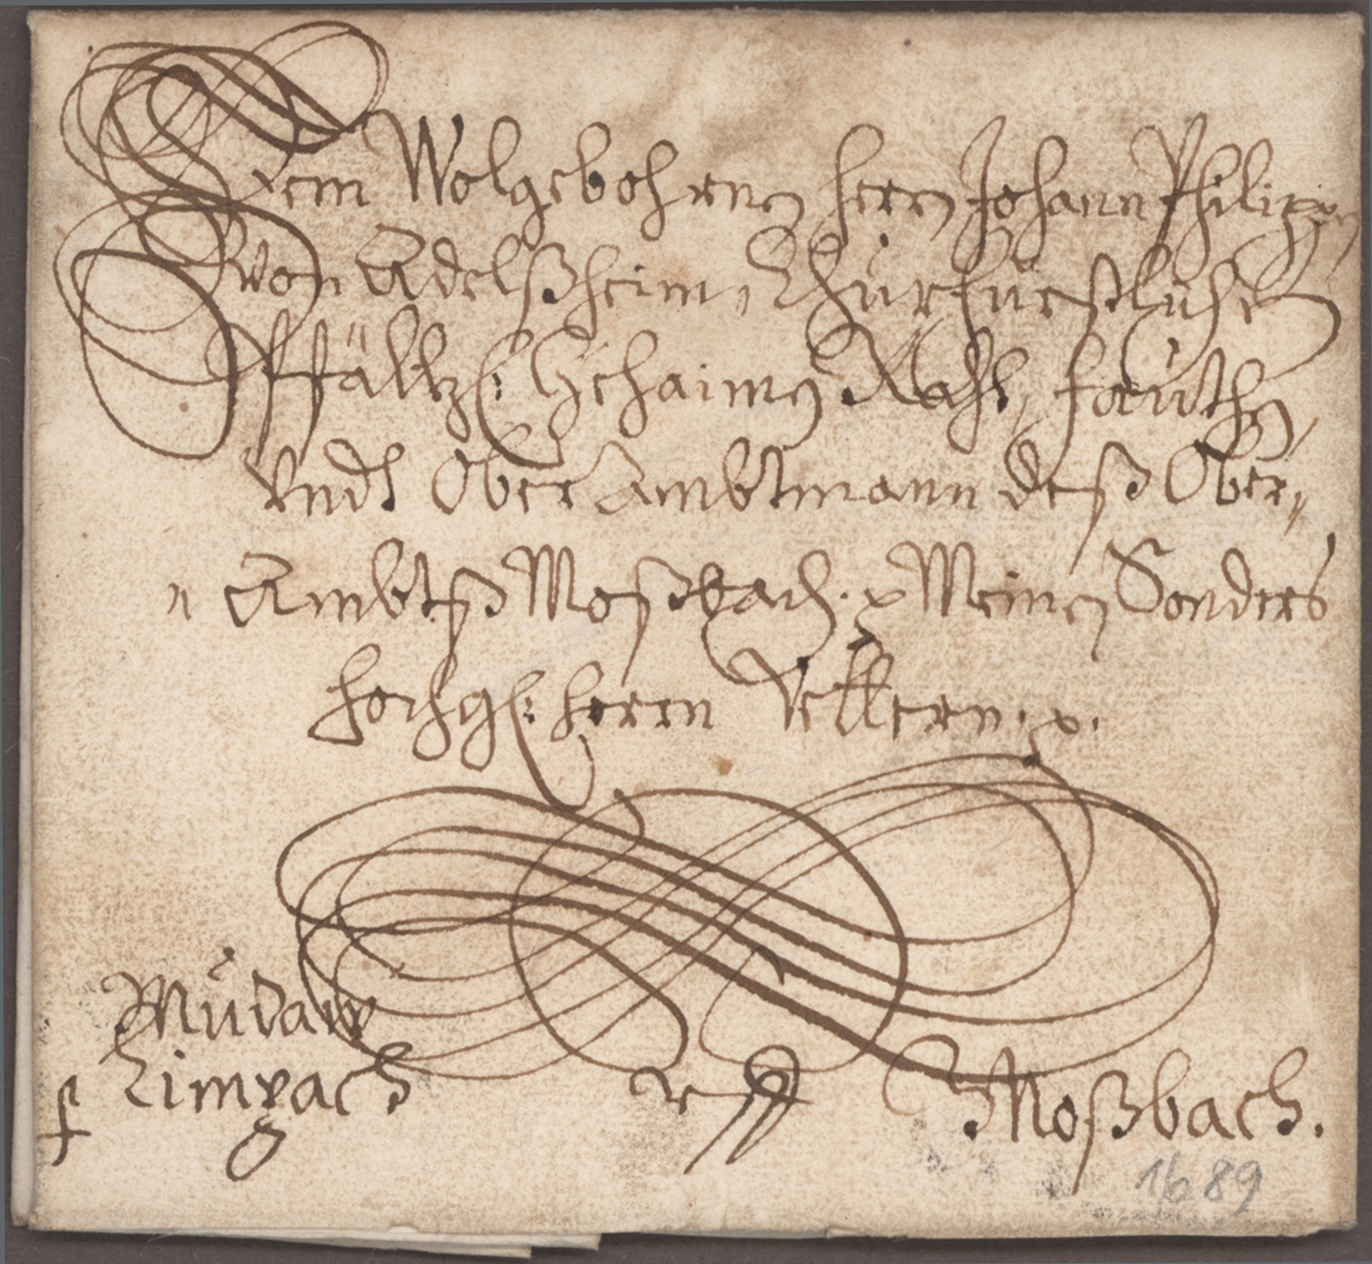 Dem Wolgebohrnen Herrn Johann Philipp
von Adelßheim, Churfürstlicher
Pfältz: Gehaimen Raht, Fauthen
Vndt Ober Ambtmann deß Ober,,
,, Ambtß Moßbach. Meinen Sonders
Hochg: Herrn Vettern.
Mudaw
Limpach
Moßbach.
1689